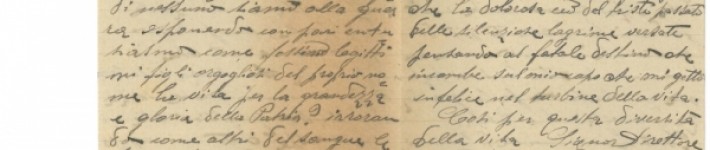 di nessuno siamo alla guer
ra esponendo con pari entu
siasmo come fossimo legitti
mi figli orgogliosi del proprio no
me la vita per la grandezza
e gloria della Patria?
do come altri del sangue le
che la dolorosa eco del triste passato
delle silenziose lagrime versate
pensando al fatale destino che
incombe sul mio capo che mi gitta
infelice nel turbine della vita.
Così per questa diversità
della vita Signor Direttore